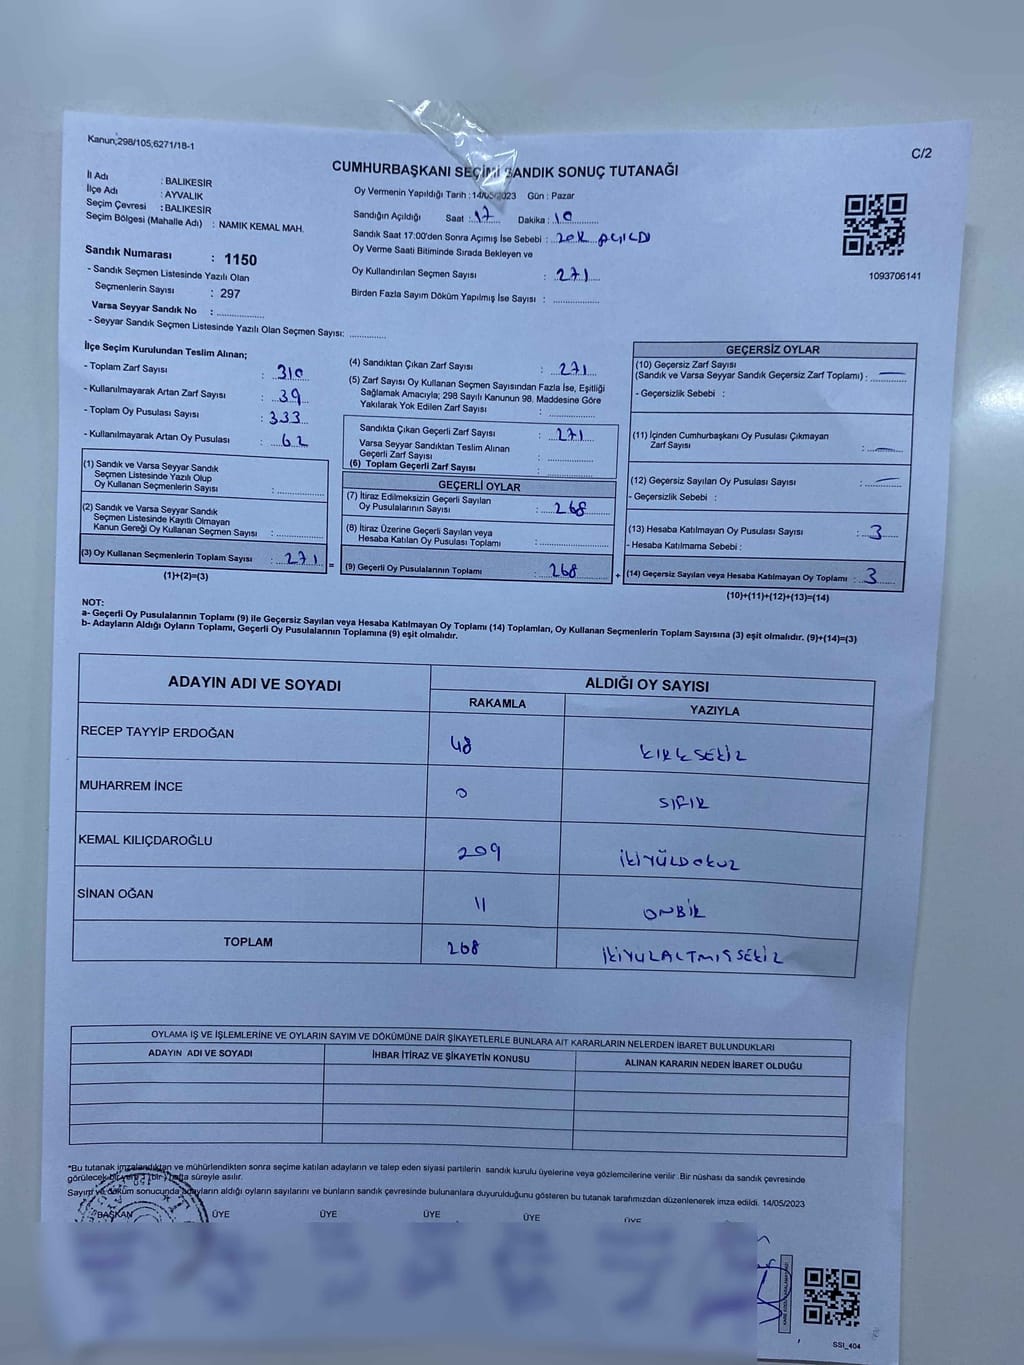 Kanun;298/105,6271/18-1
C/2
CUMHURBAŞKANI SEÇİMİ SANDIK SONUÇ TUTANAĞI
İl Adı : BALIKESİR
İlçe Adı : AYVALIK
Seçim Çevresi : BALIKESİR
Seçim Bölgesi (Mahalle Adı) : NAMIK KEMAL MAH.
Oy Vermenin Yapıldığı Tarih : 14/05/2023 Gün : Pazar
Sandığın Açıldığı Saat : 17 Dakika : 10
Sandık Saat 17:00'den Sonra Açımış İse Sebebi : AÇILDI
Oy Verme Saati Bitiminde Sırada Bekleyen ve
Oy Kullandırılan Seçmen Sayısı : 271
Birden Fazla Sayım Döküm Yapılmış İse Sayısı :
1093706141
Sandık Numarası : 1150
- Sandık Seçmen Listesinde Yazılı Olan
Seçmenlerin Sayısı : 297
Varsa Seyyar Sandık No :
- Seyyar Sandık Seçmen Listesinde Yazılı Olan Seçmen Sayısı:
İlçe Seçim Kurulundan Teslim Alınan;
- Toplam Zarf Sayısı : 310
- Kullanılmayarak Artan Zarf Sayısı : 39
- Toplam Oy Pusulası Sayısı : 333
- Kullanılmayarak Artan Oy Pusulası : 62
(1) Sandık ve Varsa Seyyar Sandık
Seçmen Listesinde Yazılı Olup
Oy Kullanan Seçmenlerin Sayısı :
(2) Sandık ve Varsa Seyyar Sandık
Seçmen Listesinde Kayıtlı Olmayan
Kanun Gereği Oy Kullanan Seçmen Sayısı :
(3) Oy Kullanan Seçmenlerin Toplam Sayısı : 271 =
(1)+(2)=(3)
(4) Sandıktan Çıkan Zarf Sayısı : 271
(5) Zarf Sayısı Oy Kullanan Seçmen Sayısından Fazla İse, Eşitliği
Sağlamak Amacıyla; 298 Sayılı Kanunun 98. Maddesine Göre
Yakılarak Yok Edilen Zarf Sayısı :
Sandıkta Çıkan Geçerli Zarf Sayısı : 271
Varsa Seyyar Sandıktan Teslim Alınan
Geçerli Zarf Sayısı :
(6) Toplam Geçerli Zarf Sayısı :
GEÇERLİ OYLAR
(7) İtiraz Edilmeksizin Geçerli Sayılan
Oy Pusulalarının Sayısı : 268
(8) İtiraz Üzerine Geçerli Sayılan veya
Hesaba Katılan Oy Pusulası Toplamı :
(9) Geçerli Oy Pusulalarının Toplamı : 268 +
GEÇERSİZ OYLAR
(10) Geçersiz Zarf Sayısı
(Sandık ve Varsa Seyyar Sandık Geçersiz Zarf Toplamı) : —
- Geçersizlik Sebebi :
(11) İçinden Cumhurbaşkanı Oy Pusulası Çıkmayan
Zarf Sayısı : —
(12) Geçersiz Sayılan Oy Pusulası Sayısı : —
- Geçersizlik Sebebi :
(13) Hesaba Katılmayan Oy Pusulası Sayısı : 3
- Hesaba Katılmama Sebebi :
(14) Geçersiz Sayılan veya Hesaba Katılmayan Oy Toplamı : 3
(10)+(11)+(12)+(13)=(14)
NOT:
a- Geçerli Oy Pusulalarının Toplamı (9) ile Geçersiz Sayılan veya Hesaba Katılmayan Oy Toplamı (14) Toplamları, Oy Kullanan Seçmenlerin Toplam Sayısına (3) eşit olmalıdır. (9)+(14)=(3)
b- Adayların Aldığı Oyların Toplamı, Geçerli Oy Pusulalarının Toplamına (9) eşit olmalıdır.
ADAYIN ADI VE SOYADI ALDIĞI OY SAYISI
RAKAMLA YAZIYLA
RECEP TAYYİP ERDOĞAN 48 KIRKSEKİZ
MUHARREM İNCE 0 SIFIR
KEMAL KILIÇDAROĞLU 209 İKİYÜZDOKUZ
SİNAN OĞAN 11 ONBİR
TOPLAM 268 İKİYUZALTMIŞSEKİZ
OYLAMA İŞ VE İŞLEMLERİNE VE OYLARIN SAYIM VE DÖKÜMÜNE DAİR ŞİKAYETLERLE BUNLARA AİT KARARLARIN NELERDEN İBARET BULUNDUKLARI
ADAYIN ADI VE SOYADI İHBAR İTİRAZ VE ŞİKAYETİN KONUSU ALINAN KARARIN NEDEN İBARET OLDUĞU
*Bu tutanak imzalandıktan ve mühürlendikten sonra seçime katılan adayların ve talep eden siyasi partilerin sandık kurulu üyelerine veya gözlemcilerine verilir. Bir nüshası da sandık çevresinde
görülecek bir yere 1 (bir) hafta süreyle asılır.
Sayım ve döküm sonucunda adayların aldığı oyların sayılarını ve bunların sandık çevresinde bulunanlara duyurulduğunu gösteren bu tutanak tarafımızdan düzenlenerek imza edildi. 14/05/2023
BAŞKAN ÜYE ÜYE ÜYE ÜYE ÜYE
SSI_404